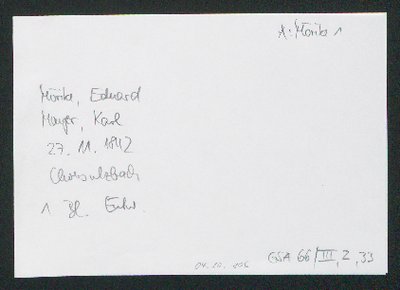 A: Mörike 1
Mörike, Eduard
Mayer, Karl
27. 11. 1842
Cleversulzbach
1 Bl. Entw.
GSA 66/III, 2, 33